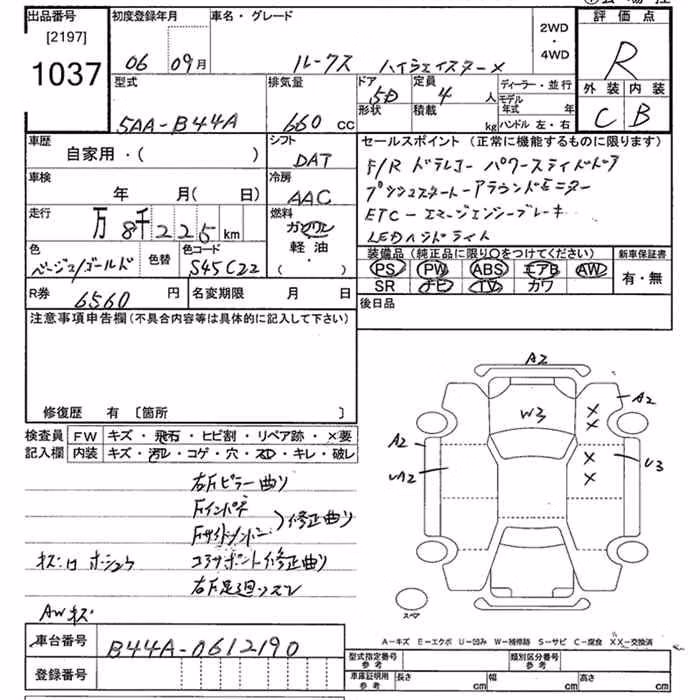 出品番号 初度登録年月 車名・グレード 2WD・4WD 評価点
[2197]
1037 06 09月 ルークス ハイウェイスターX R
型式 排気量 ドア 定員 ディーラー・並行 外装 内装
5AA-B44A 660 CC 5D 4 人 モデル年式 年 C B
形状 積載 kg ハンドル 左・右
車歴 シフト セールスポイント (正常に機能するものに限ります)
自家用・( ) DAT F/R ドラレコー パワースライドドア
車検 冷房 プッシュスタートーアラウンドモニター
年 月( 日) AAC ETC-エマージェンシーブレーキ
走行 燃料 LEDヘッドライト
万 8千 2 2 5 km ガソリン
軽油
・( )
色 色替 色コード 装備品 (純正品に限り〇をつけてください) 新車保証書
ベージュ/ゴールド S45C22 PS PW ABS エアB AW 有・無
SR ナビ TV カワ
R券 6560 円 名変期限 月 日 後日品
注意事項申告欄(不具合内容等は具体的に記入して下さい)
修復歴 有 〔箇所 〕
検査員 FW キズ・飛石・ヒビ割・リペア跡・×要
記入欄 内装 キズ・汚レ・コゲ・穴・スレ・キレ・破レ
A2
A2
W3
X
X
A2
X
UA2
X
U3
右Fピラー曲り
Fインパネ
Fサイドメンバー
修正曲り
コアサポート修正曲り
右F足廻リズレ
AWキズ
スペア
A-キズ E-エクボ U-凹み W-補修跡 S-サビ C-腐食 XX-交換済
車台番号 B44A-0612190
登録番号
型式指定番号 参考 類別区分番号 参考
車庫証明用 参考 長さ cm 幅 cm 高さ cm